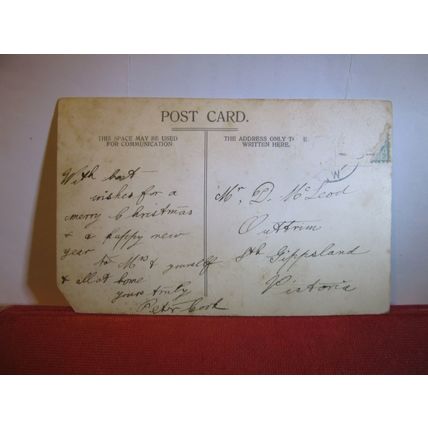 POST CARD.
THIS SPACE MAY BE USED
FOR COMMUNICATION
THE ADDRESS ONLY T E
WRITTEN HERE.
With best
wishes for a
merry Christmas
& a happy new
year
to Mrs & yourself
& all at home
yours truly
Peter Cook
Mr. D. McLeod
Outtrim
Sth Gippsland
Victoria
W